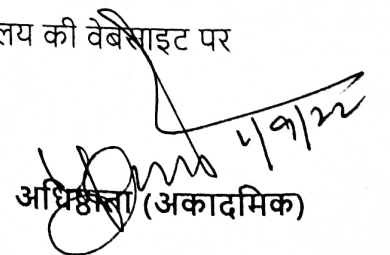 लय की वेबसाइट पर
1/9/22
अधिष्ठाता (अकादमिक)